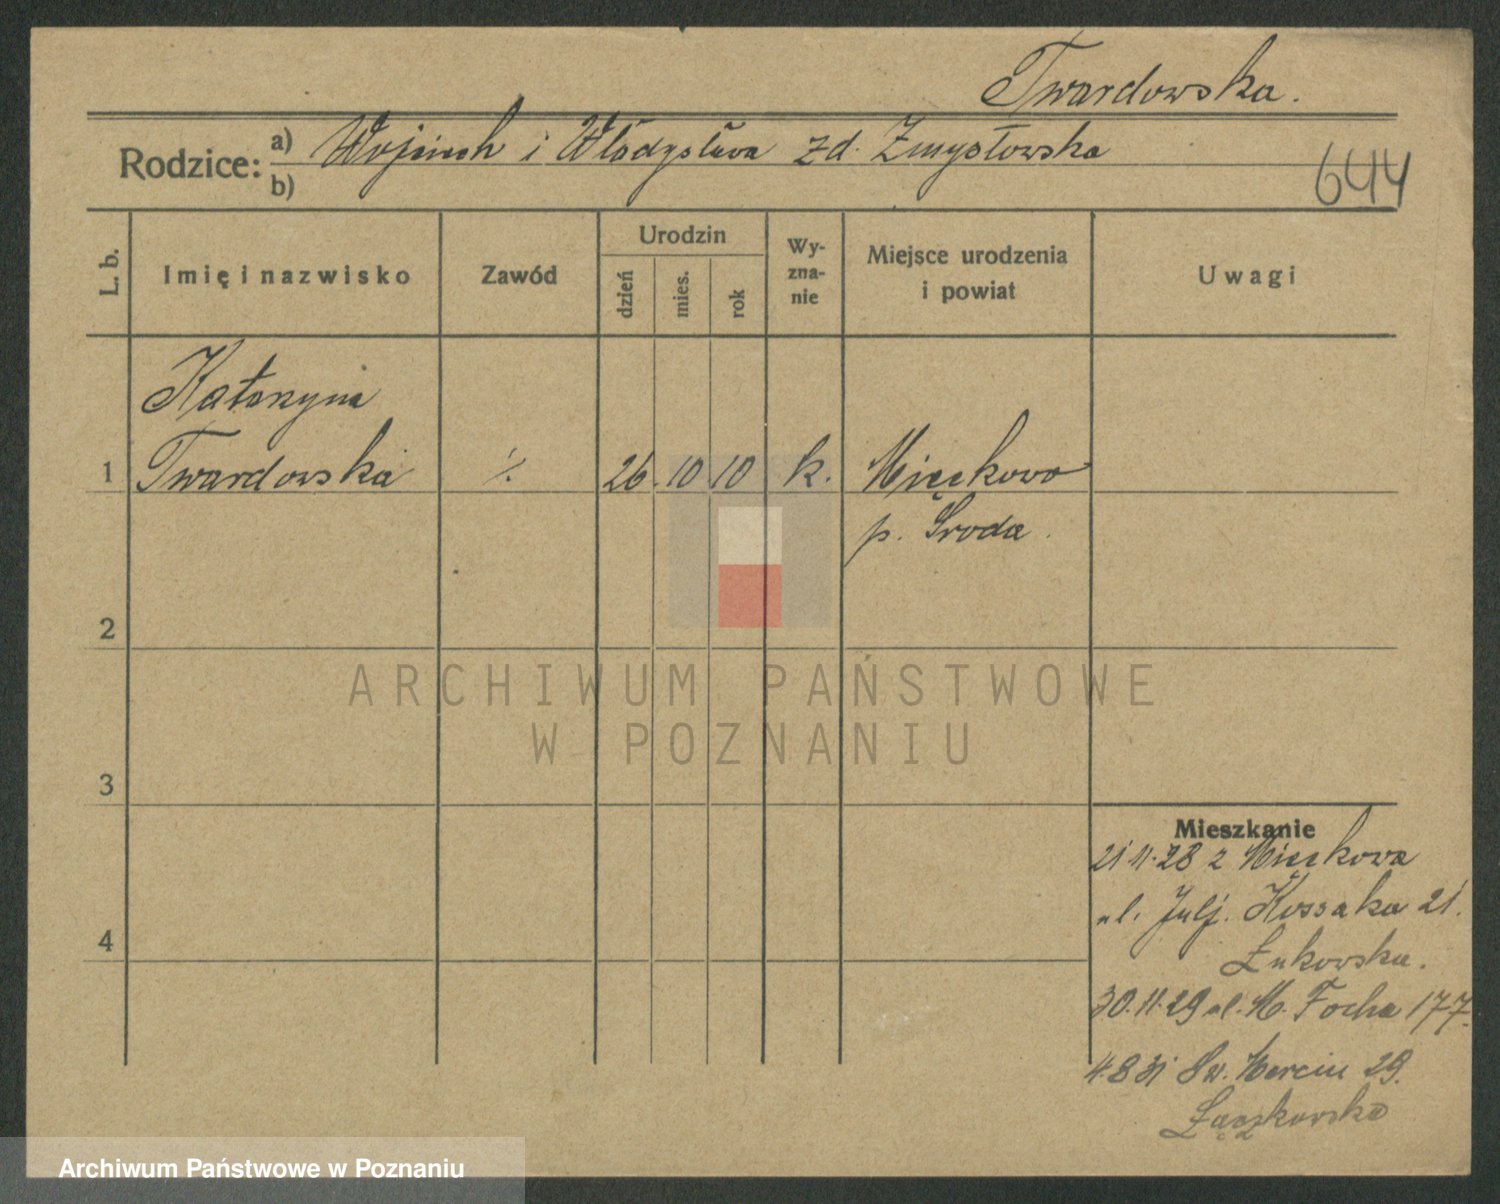 Twardowska.
Rodzice: a) Wojciech i Władysława zd. Zmysłowska
b)
644
L. b.
Imię i nazwisko
Zawód
Urodzin
dzień
mies.
rok
Wy-
zna-
nie
Miejsce urodzenia
i powiat
Uwagi
Katarzyna
1 Twardowska ./. 26. 10 10 k. Mięckowo
p. Środa.
2
3
4
Mieszkanie
21 11.28 z Mięckowa
ul. Julj. Kossaka 21.
Łukowska.
30.11.29 ul. M. Focha 177.
4.8 31 Św. Marcin 29.
Łączkowska
ARCHIWUM PAŃSTWOWE
W POZNANIU
Archiwum Państwowe w Poznaniu